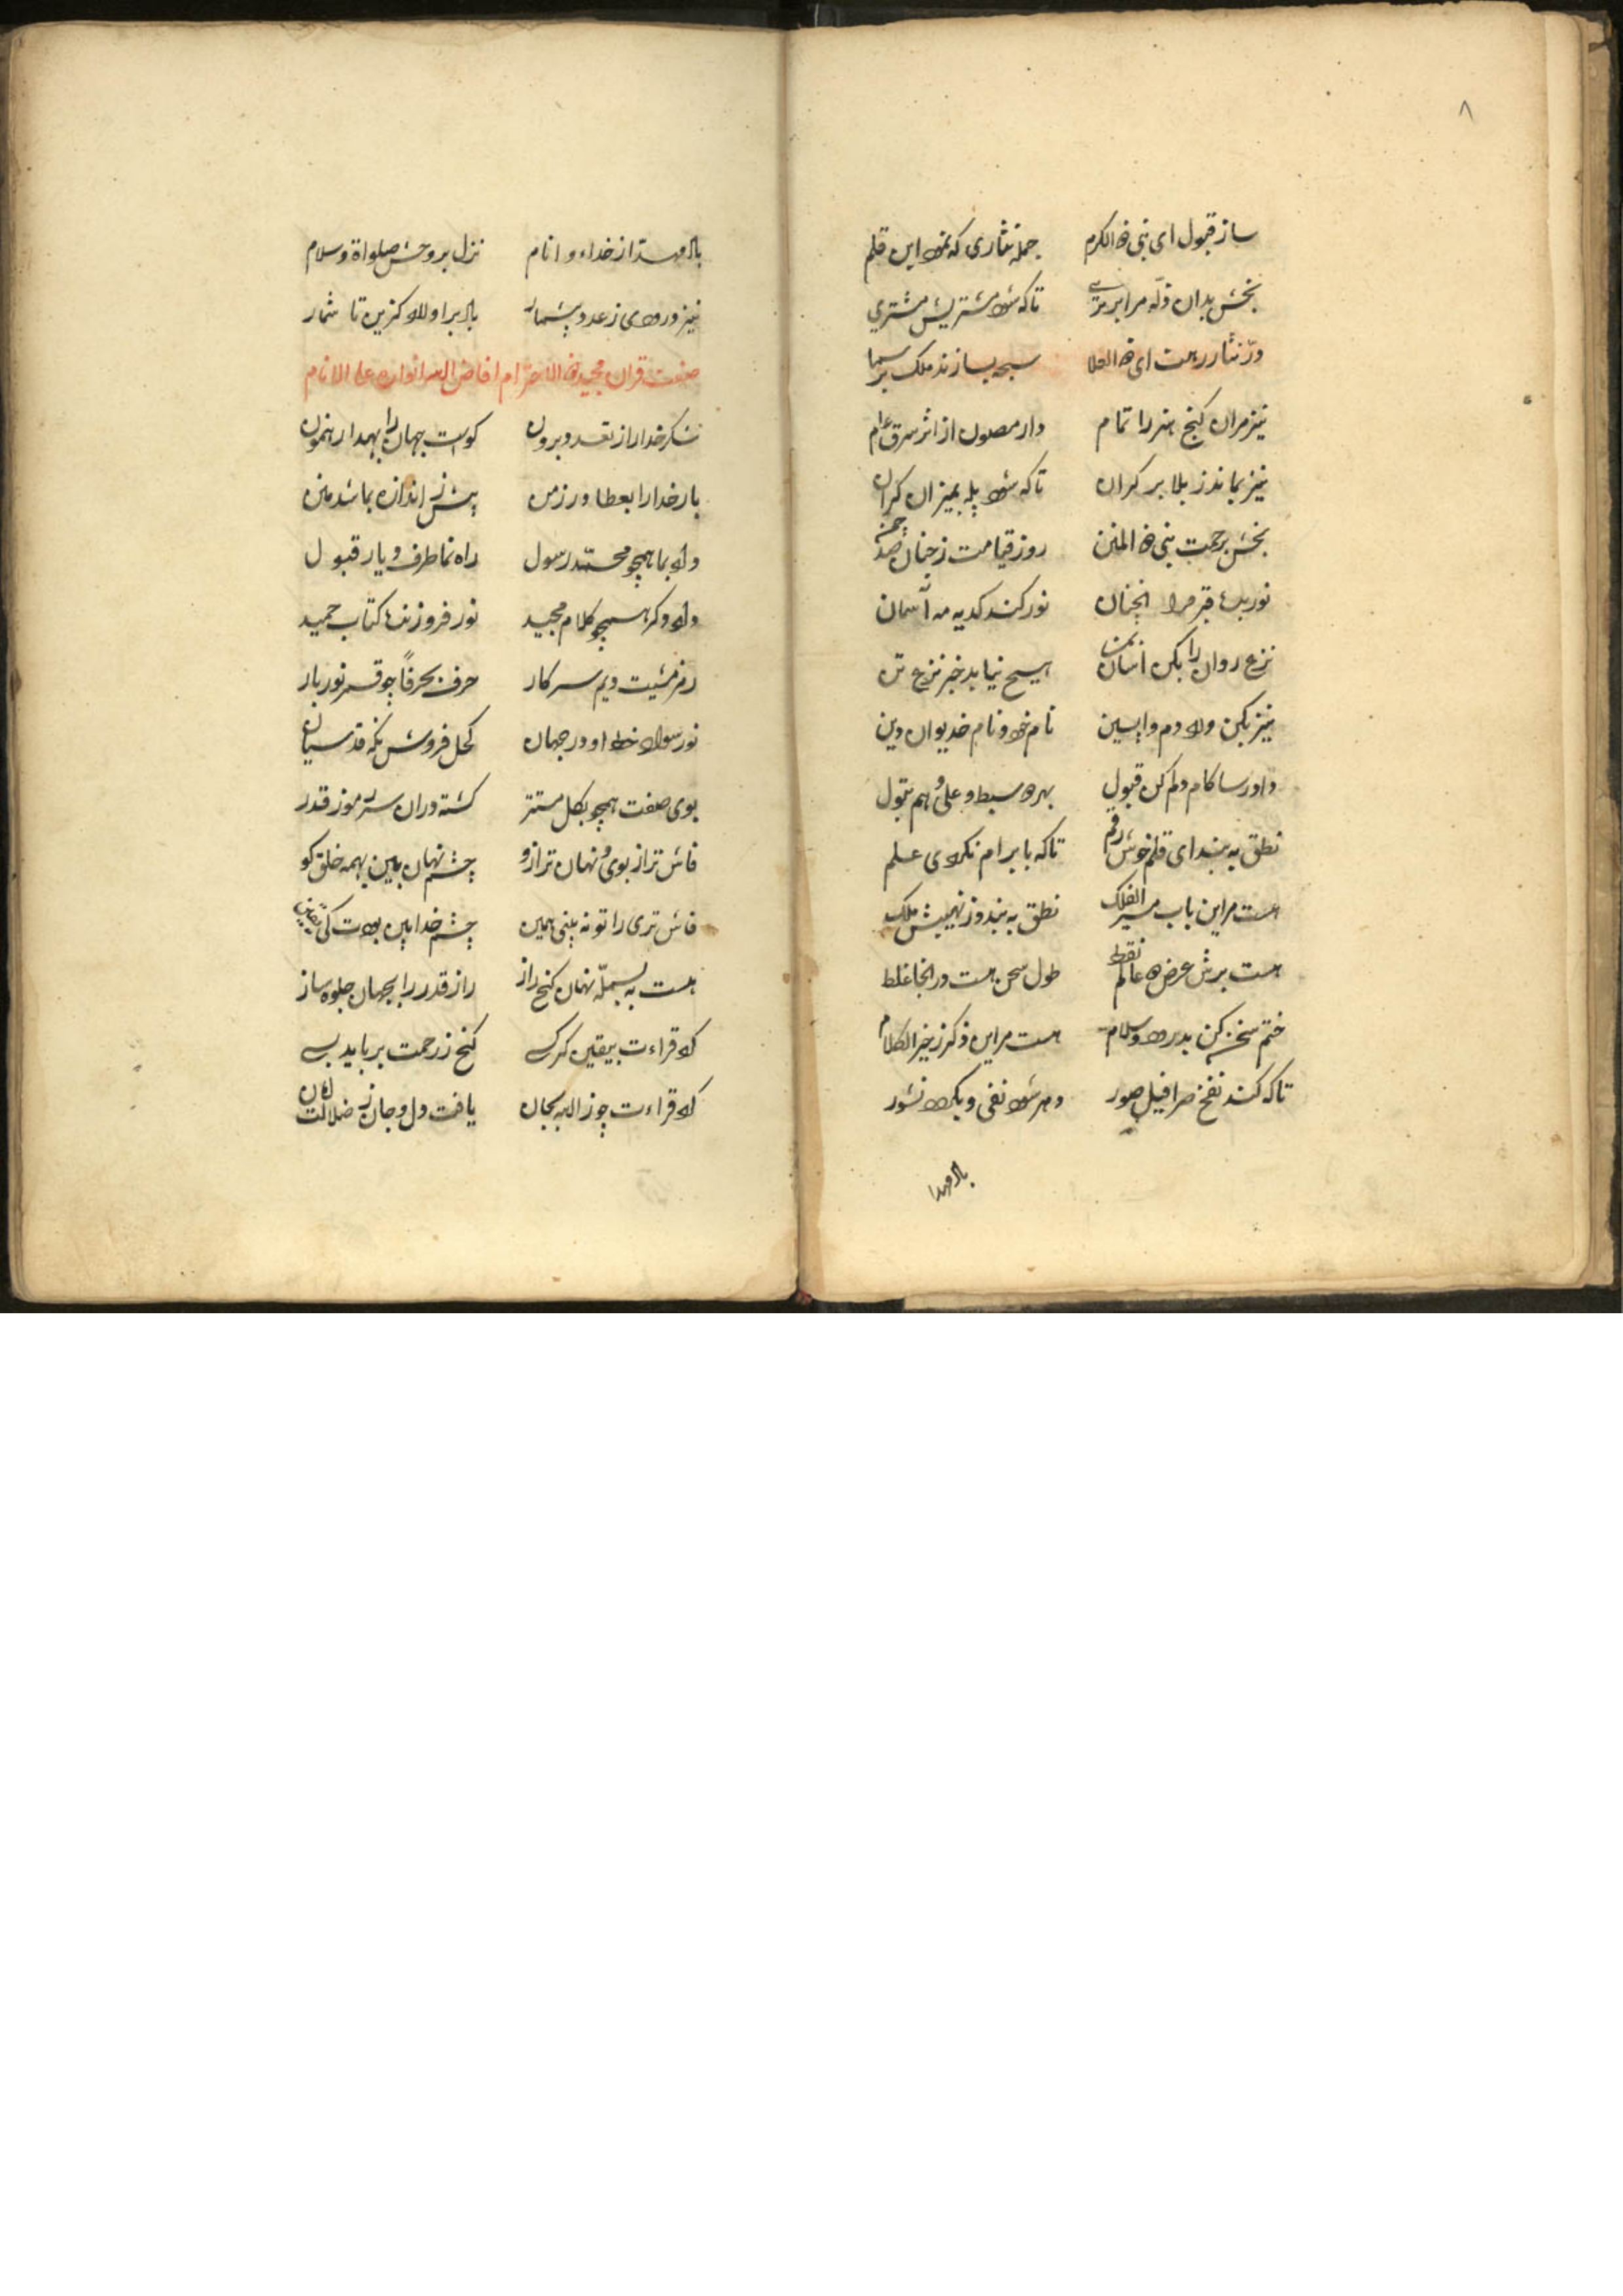 ۸
ساز قبول ای نبی ذه الکرم جمله نثاری که نمود این قلم
بخش بدان در مرا برتری تا که شود مشتریش مشتری
در نثار رهت ای ذه العلا سبحه بسازند ملک بر سما
نیز مران کنج هنر را تمام دار مصون از اثر سرق عام
نیز بماندز بلا بر کران تا که شود پله بمیزان کران
بخش برحمت نبی ذه المنن روز قیامت زجنان صد چمن
نور بده قبر مرا انچنان نور کند کدیه مه آسمان
نزع روان را بکن اسان بمن هیچ نیاید خبر نزع تن
نیز بکن ورد دم واپسین نام خود و نام خدیوان دین
داور سا کام دلم کن قبول بهر دو سبط و علی و هم بتول
نطق به بند ای قلم خوش رقم تا که بابرام نکردی علم
هست مر این باب مسیر الفلک نطق به بندوز نهیبش ملک
هست برش عرض دو عالم نقط طول سخن هست در انجا غلط
ختم سخن کن بدرود و سلام هست مر این ذکر ز خیر الکلام
تا که کند نفخ صرافیل صور دهر شود نفی و بکردد نشور
باد مهدا
باد مهدا از خداء و انام نزل بروحش صلواة و سلام
نیز درودی ز عدد بیشمار باد بر اولاد کزین تا شمار
صفت قران مجید ذه الاحترام افاض الله انواره علی الانام
شکر خدا را از تعدد برون کوست جهان را بهمدا رهنمون
بار خدا را بعطا ورز من بیش ز اندازه بما شد منن
داد بما همچو محمد رسول راه نما طرف دیار قبول
داد دکر همچو کلام مجید نور فروزنده کتاب حمید
رمز مشیت دیم سر کار حرف بحرفا چو قمر نور بار
نور سواد خط او در جهان کحل فروش نکه قدسیان
بوی صفت همچو بکل مستتر کشته دران سر رموز قدر
فاش تر از بوی و نهان تر ازو چشم نهان بین بهمه خلق کو
فاش تری را تو نه بینی همین چشم خدا بین بودت کی یقین
هست به بسمله نهان کنج راز راز قدر را بجهان جلوه ساز
کرد قراءت بیقین کر کسی کنج ز رحمت برباید بسی
کرد قراءت چو ز الله بجان یافت دل و جان ز ضلالت امان